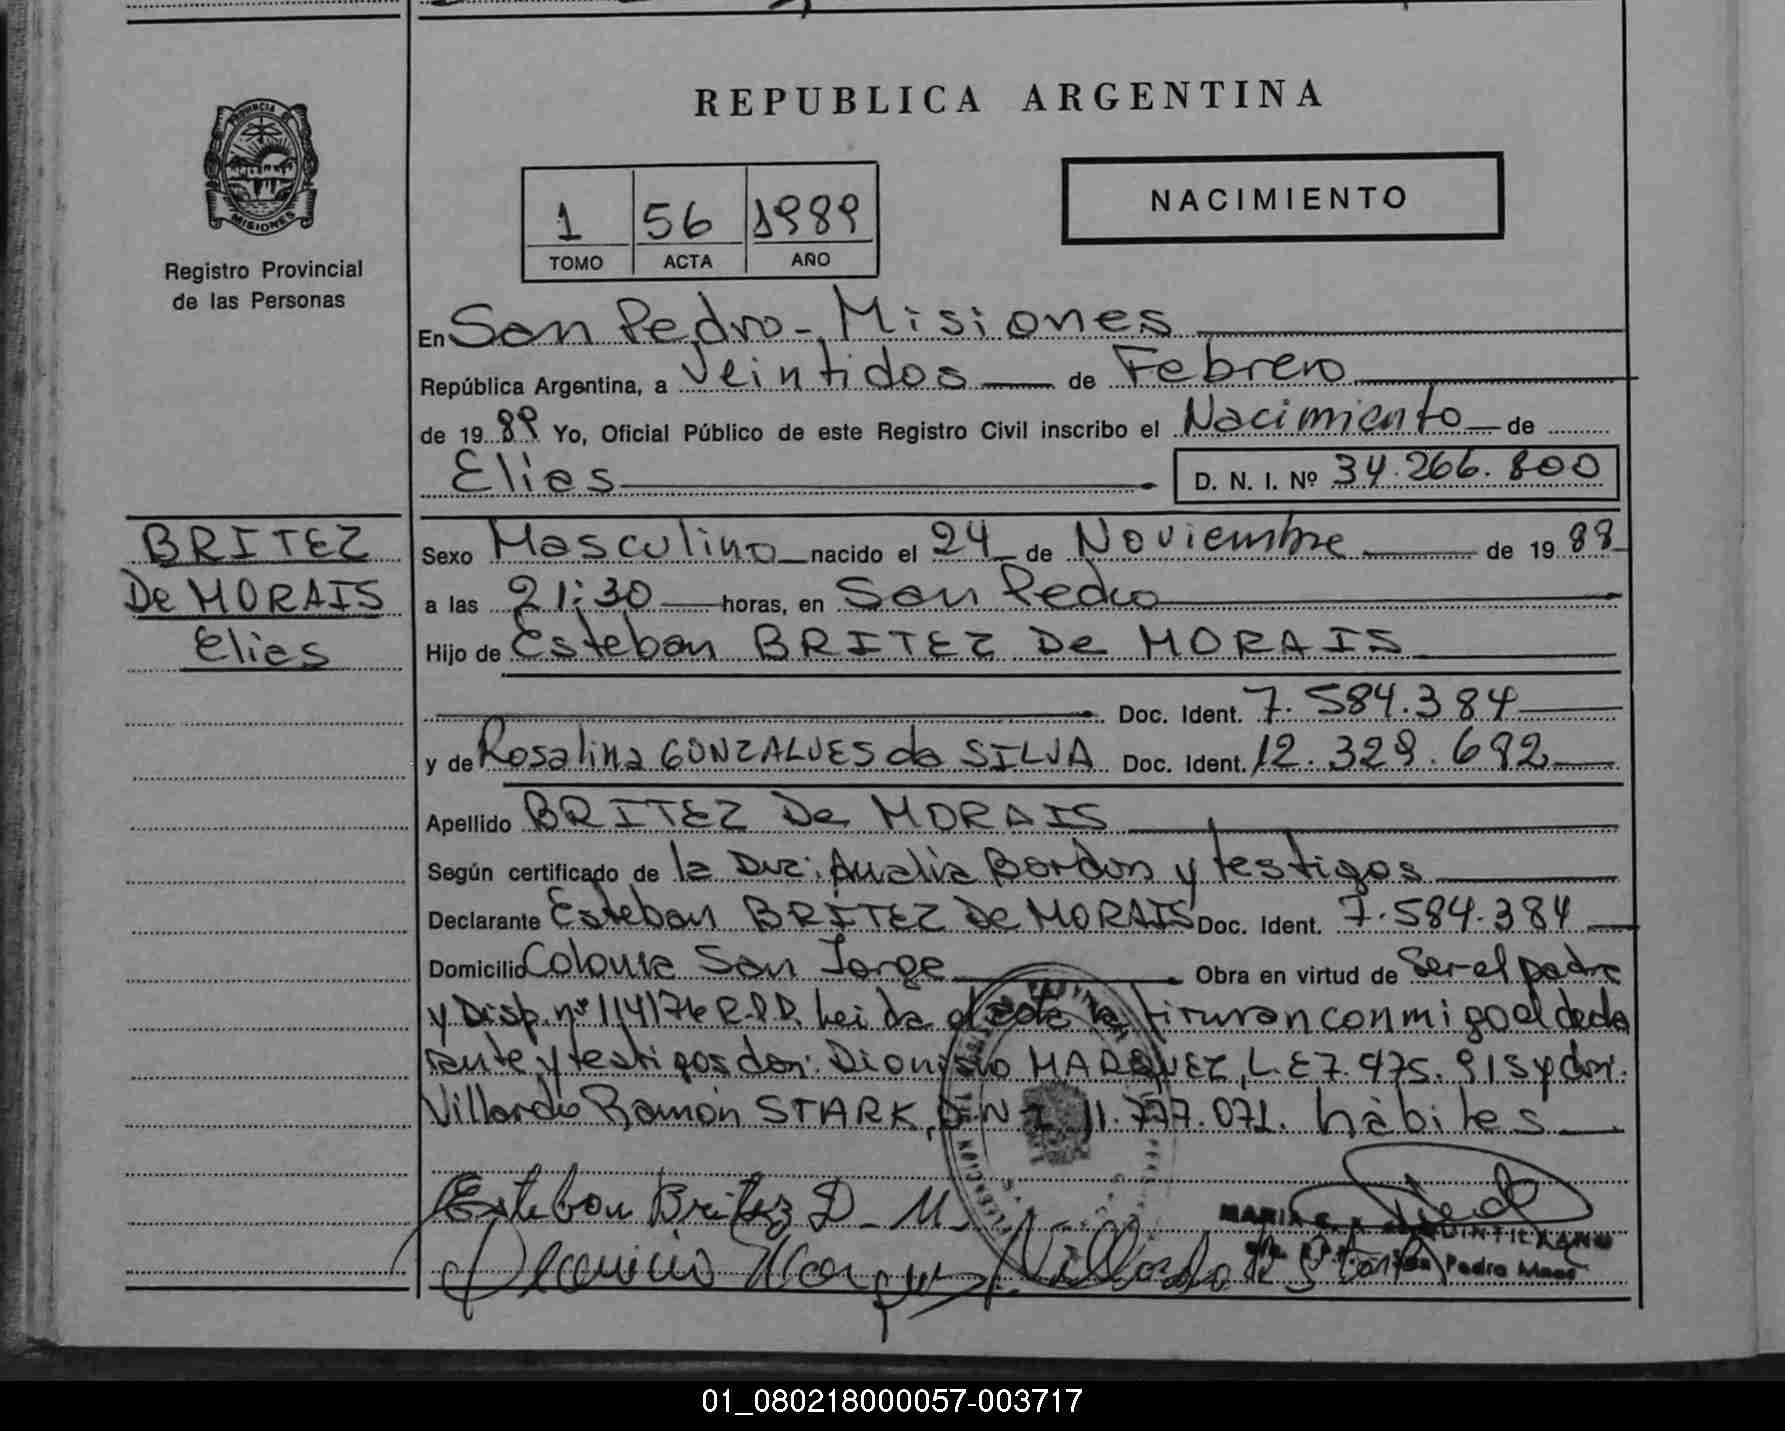 REPUBLICA ARGENTINA
PROVINCIA DE
MISIONES
Registro Provincial
de las Personas
1 56 1989
TOMO ACTA AÑO
NACIMIENTO
En San Pedro - Misiones
República Argentina, a Veintidos de Febrero
de 19 89 Yo, Oficial Público de este Registro Civil inscribo el Nacimiento de
Elias D. N. I. Nº 34.266.800
BRITEZ
De MORAIS
Elias
Sexo Masculino nacido el 24 de Noviembre de 19 88
a las 21:30 horas, en San Pedro
Hijo de Esteban BRITEZ De MORAIS
Doc. Ident. 7.584.384
y de Rosalina GONZALVES da SILVA Doc. Ident. 12.329.692
Apellido BRITEZ De MORAIS
Según certificado de la Dra: Analia Bordon y testigos
Declarante Esteban BRITEZ De MORAIS Doc. Ident. 7.584.384
Domicilio Colonia San Jorge Obra en virtud de Ser el padre
y Disp. nº 114/76 R.P.P. Leida el acta la firman conmigo el decla
rante y testigos don: Dionisio MARQUEZ, L.E 7.475.915 y don:
Villardo Ramón STARK, D N I 11.777.071. hàbiles
Esteban Britez D. M.
Villardo R Stark
MARIA QUINTILIANO
San Pedro Mnes
01_080218000057-003717